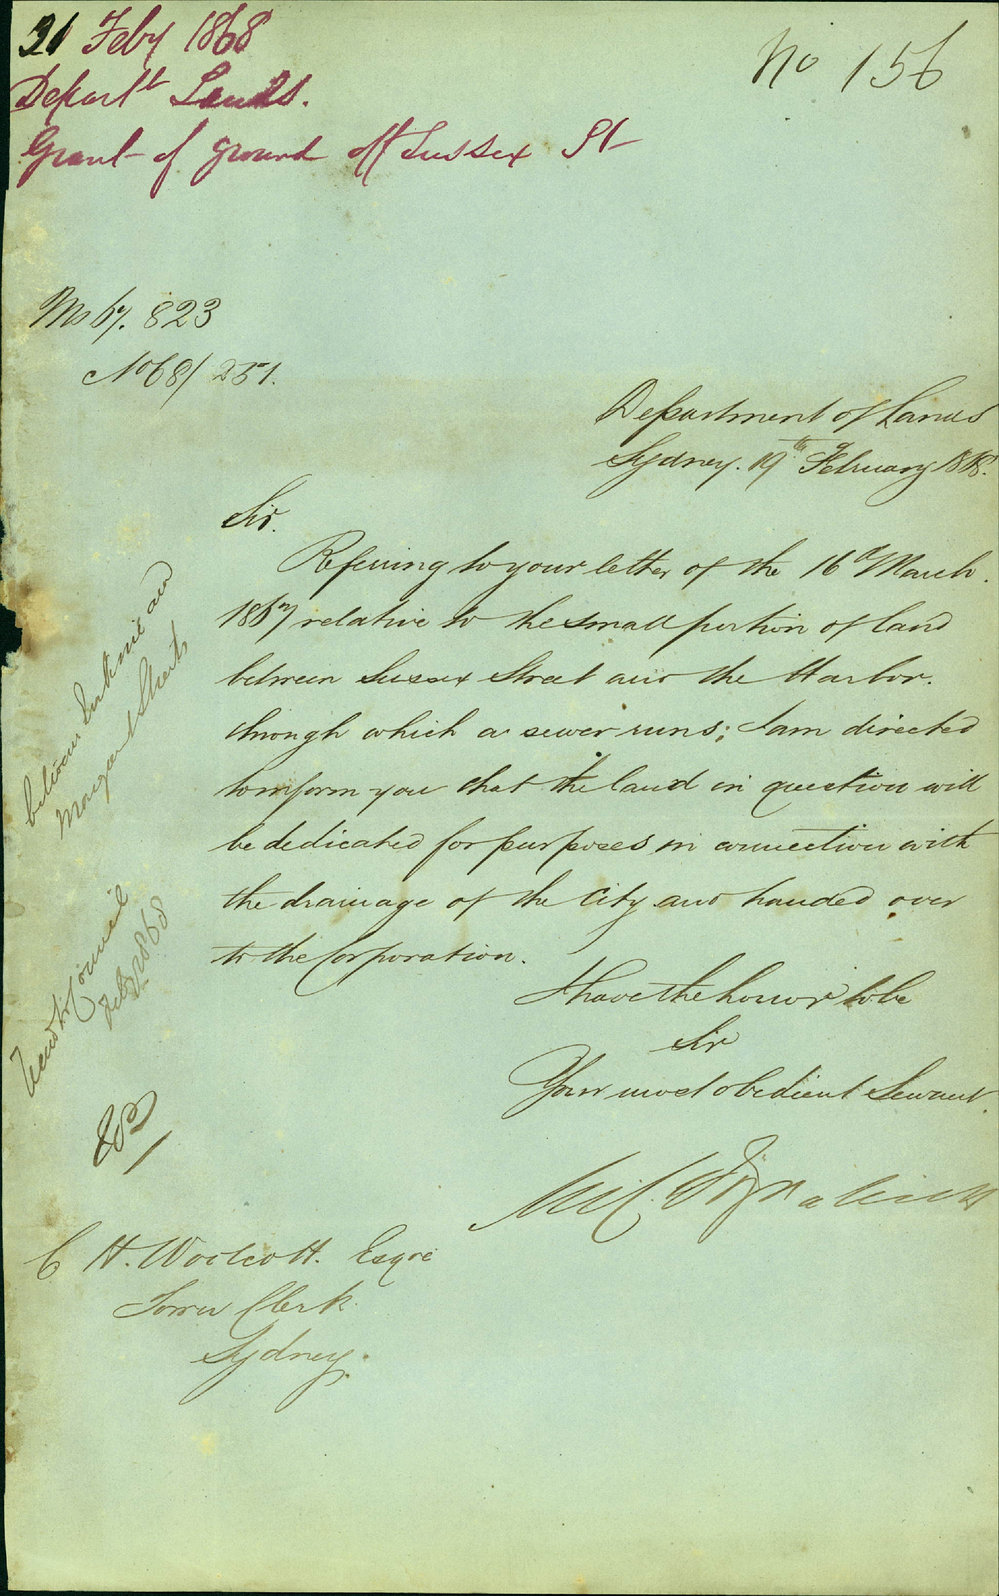 21 Feby 1868
No 156
Depart^t Lands.
Grant of ground off Sussex St
Ms 67. 823
No 68/251.
Department of Lands
Sydney. 19th February 1868.
Sir.
Referring to your letter of the 16th March.
1867 relative to the small portion of land
between Sussex Street and the Harbor.
through which a sewer runs; I am directed
to inform you that the land in question will
be dedicated for purposes in connection with
the drainage of the City and handed over
to the Corporation.
I have the honor to be
Sir
Your most obedient Servant.
between Erskine and
Margaret Streets
Council
Feby 1868
C H. Woolcott. Esqre
Town Clerk.
Sydney.